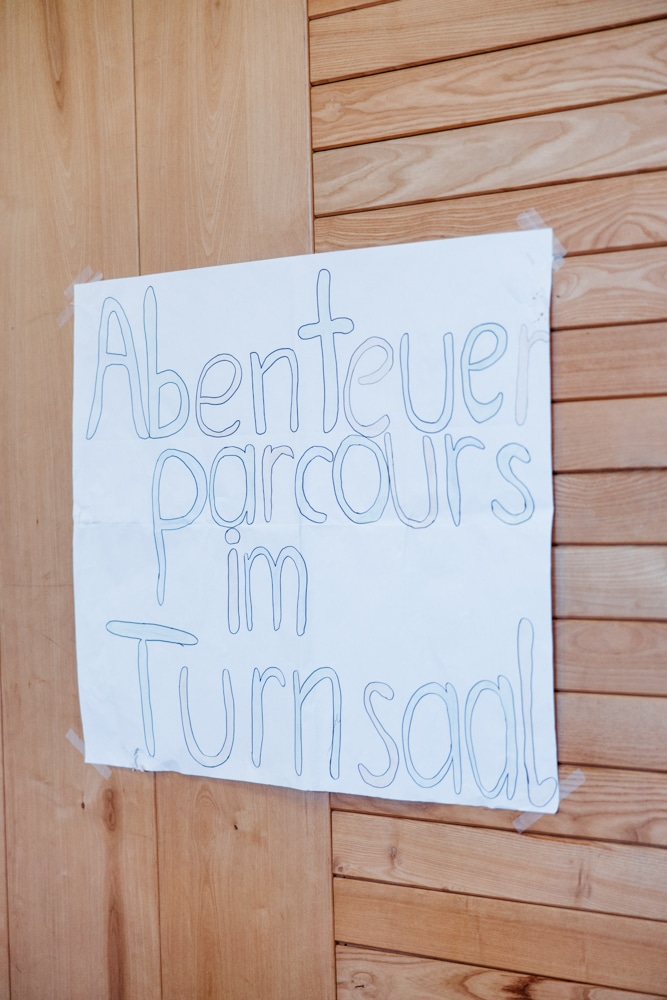 Abenteuer
parcours
im
Turnsaal